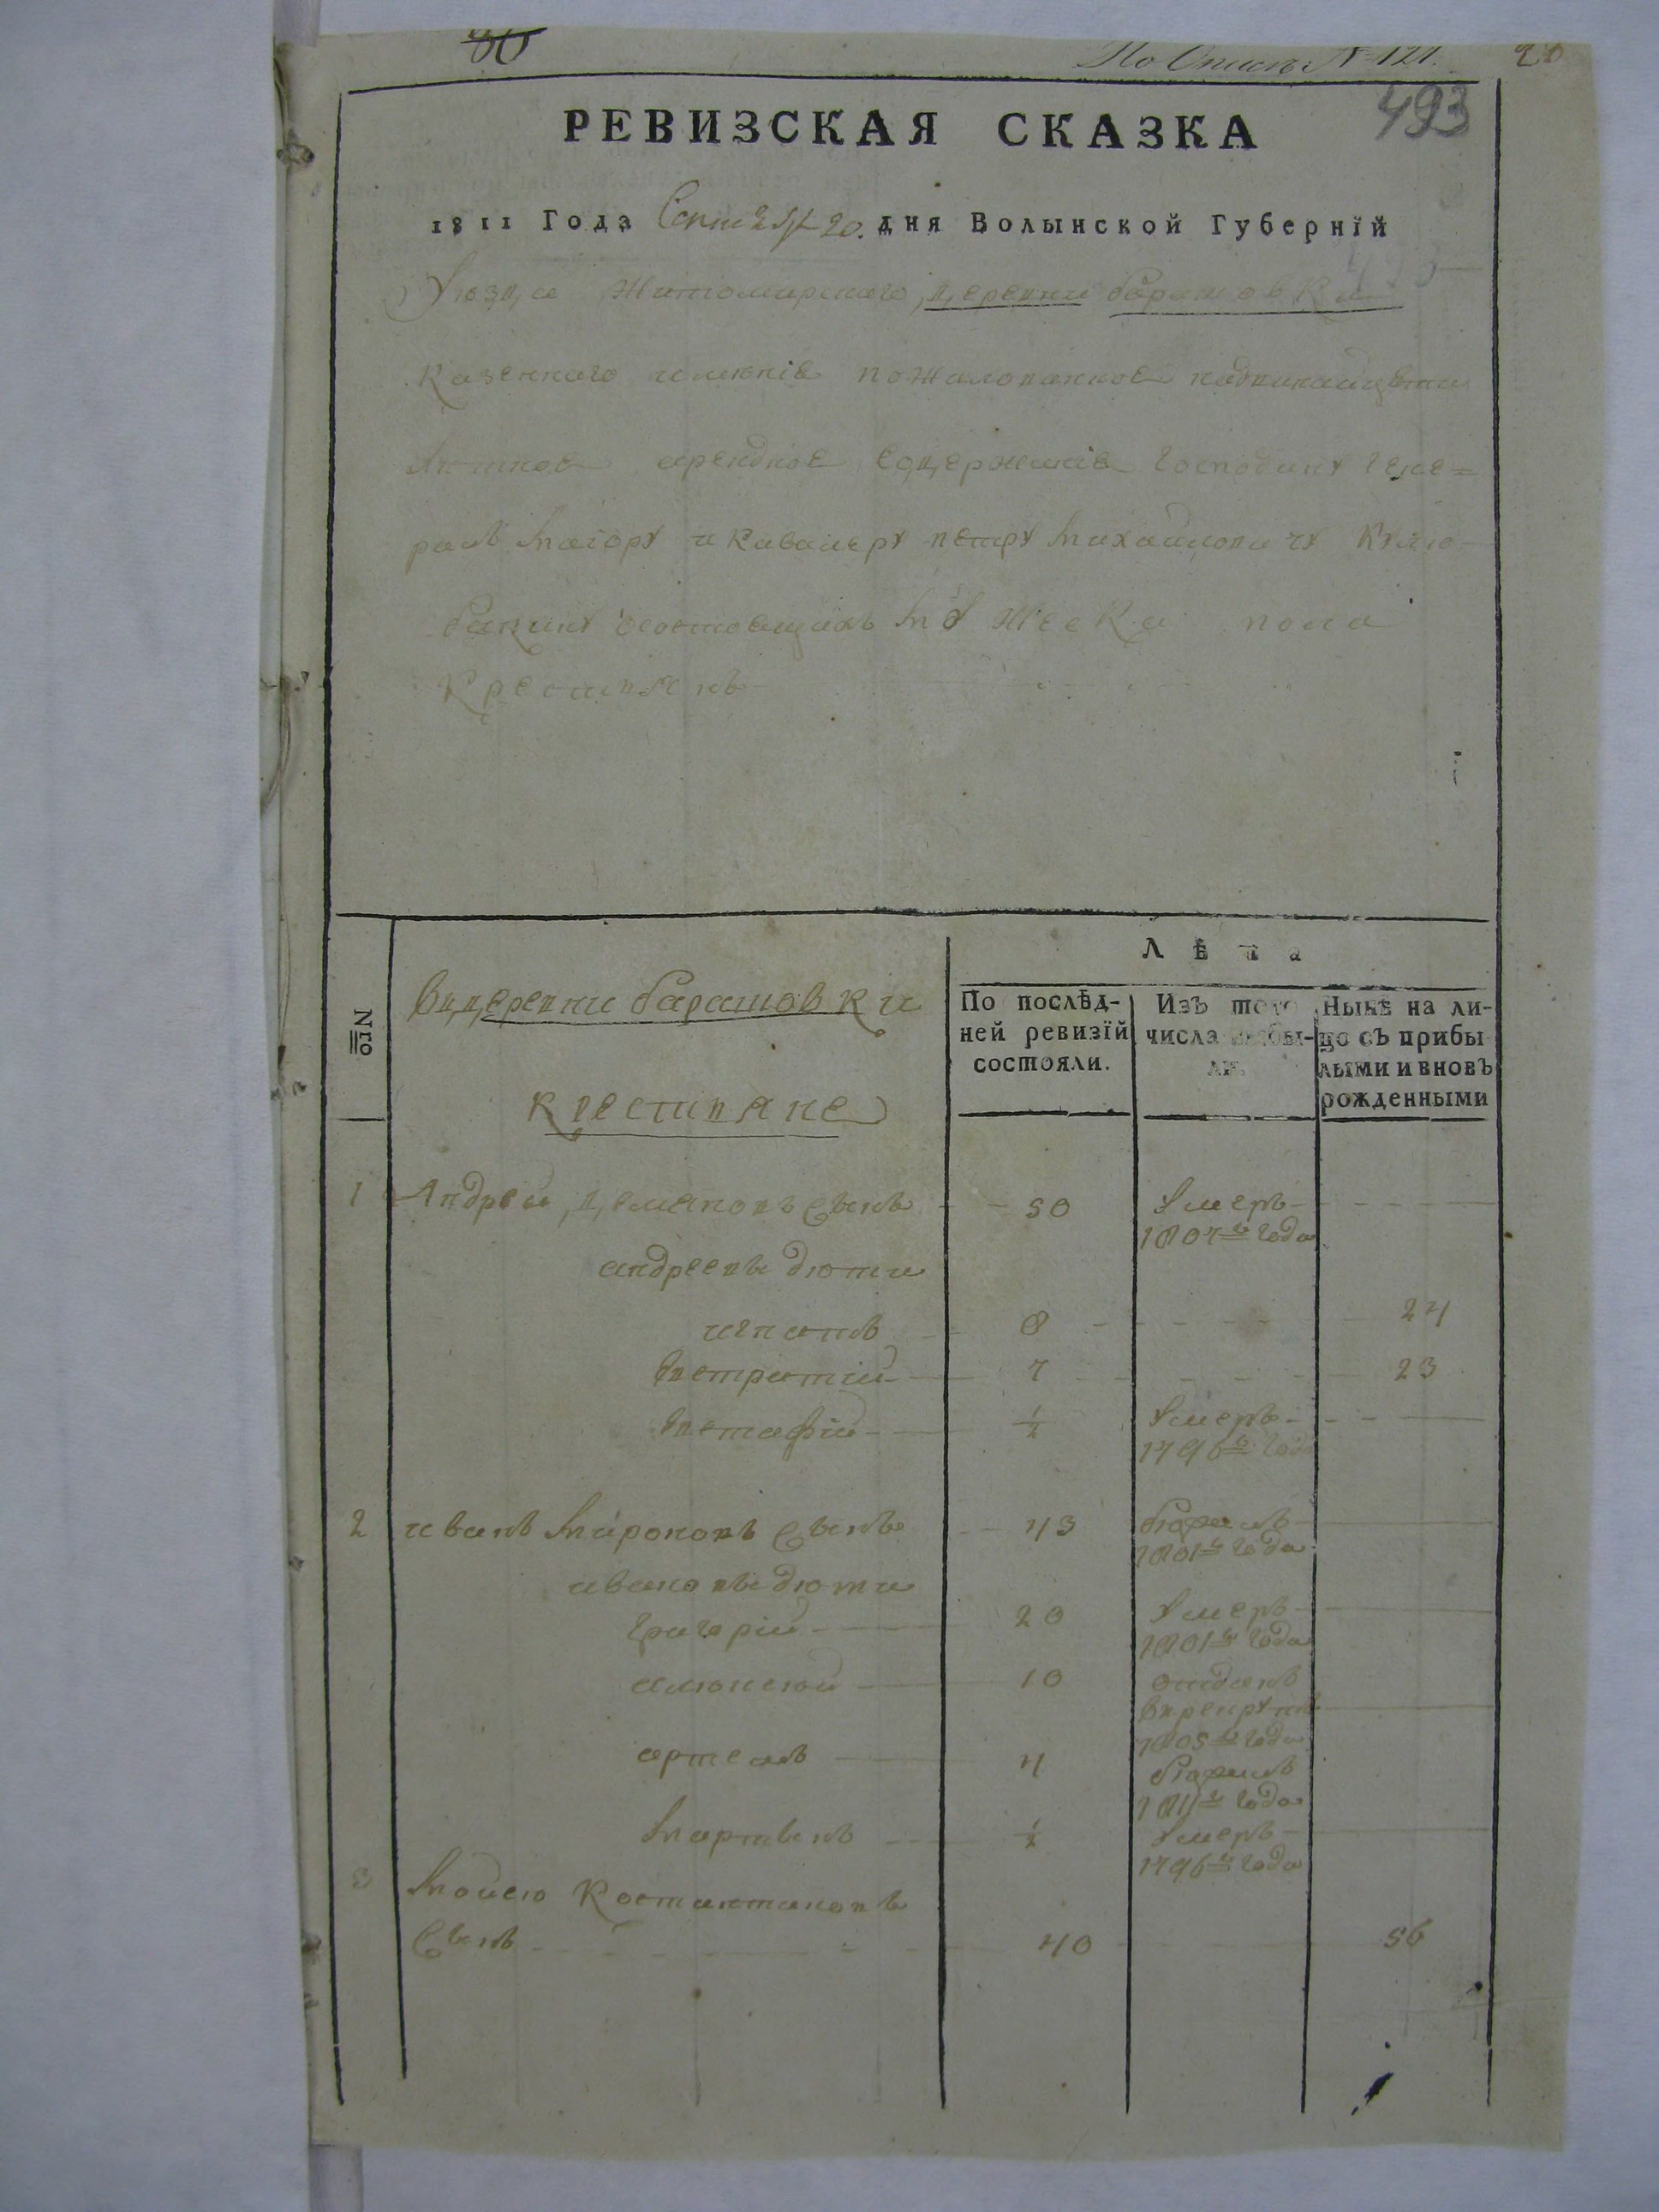 80
По Описи № 121. 20
493
РЕВИЗСКАЯ СКАЗКА
1811 Года Сент: 20. дня Волынской Губернїй
Уезда Житомирского, деревни барашовки
Казенного имения пожалованное
арендное содержание Господину Гене=
рал маiору и кавалеру петру михайловичу Колю-
бакину состоящихъ мужеска пола
Крестьянъ
Nго
Вдеревни барашовки
крестияне
Лѣта
По послѣд-
ней ревизїй
состояли.
Изъ того
числа выбы-
ли.
Нынѣ на ли-
цо съ прибы
лыми и вновъ
рожденными
1 Андрей демяновъ сынъ 50 Умеръ
1807го года
андреевы дети
игнатъ 8 24
дметрiй 7 23
½ Умеръ
1796го года
2 иванъ мироновъ сынъ 43
1801го года
ивановы дети
Григорiй 20 Умеръ
1801го года
алексей 10 отданъ
врекруты
1805го года
артемъ 4
1811го года
мартынъ ½ Умеръ
1796го года
3 моисей Костянтиновъ
Сынъ 40 56